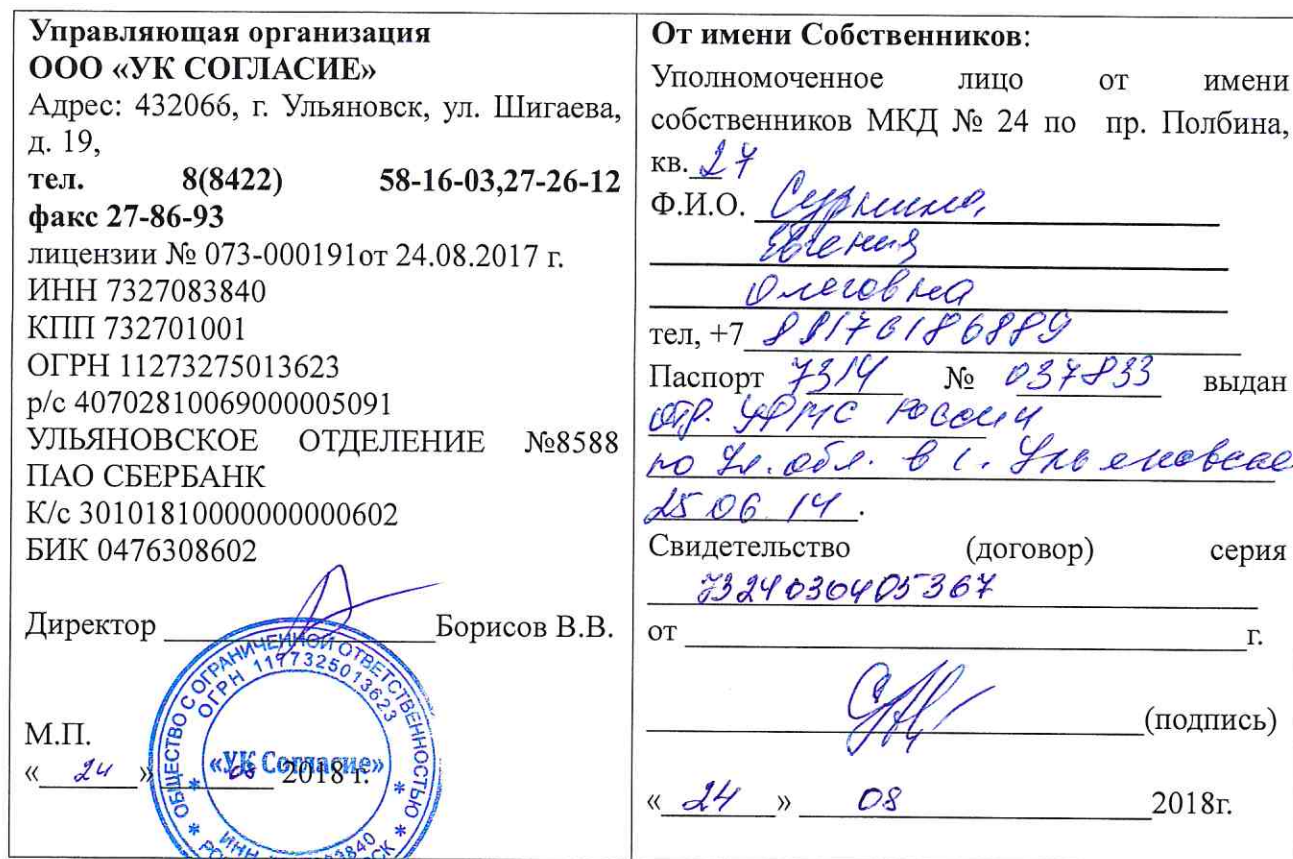 Управляющая организация
ООО «УК СОГЛАСИЕ»
Адрес: 432066, г. Ульяновск, ул. Шигаева,
д. 19,
тел. 8(8422) 58-16-03,27-26-12
факс 27-86-93
лицензии № 073-000191от 24.08.2017 г.
ИНН 7327083840
КПП 732701001
ОГРН 11273275013623
р/с 40702810069000005091
УЛЬЯНОВСКОЕ ОТДЕЛЕНИЕ №8588
ПАО СБЕРБАНК
К/с 30101810000000000602
БИК 0476308602
Директор Борисов В.В.
ОБЩЕСТВО С ОГРАНИЧЕННОЙ ОТВЕТСТВЕННОСТЬЮ
ОГРН 1177325013623
«УК Согласие»
ИНН
М.П.
« 24 » 08 2018 г.
От имени Собственников:
Уполномоченное лицо от имени
собственников МКД № 24 по пр. Полбина,
кв. 27
Ф.И.О.
Евгения
Олеговна
тел, +7
Паспорт 7314 № 037833 выдан
отд. УФМС России
по Ул. обл. в г. Ульяновске
25 06 14.
Свидетельство (договор) серия
7324030405367
от г.
(подпись)
« 24 » 08 2018г.